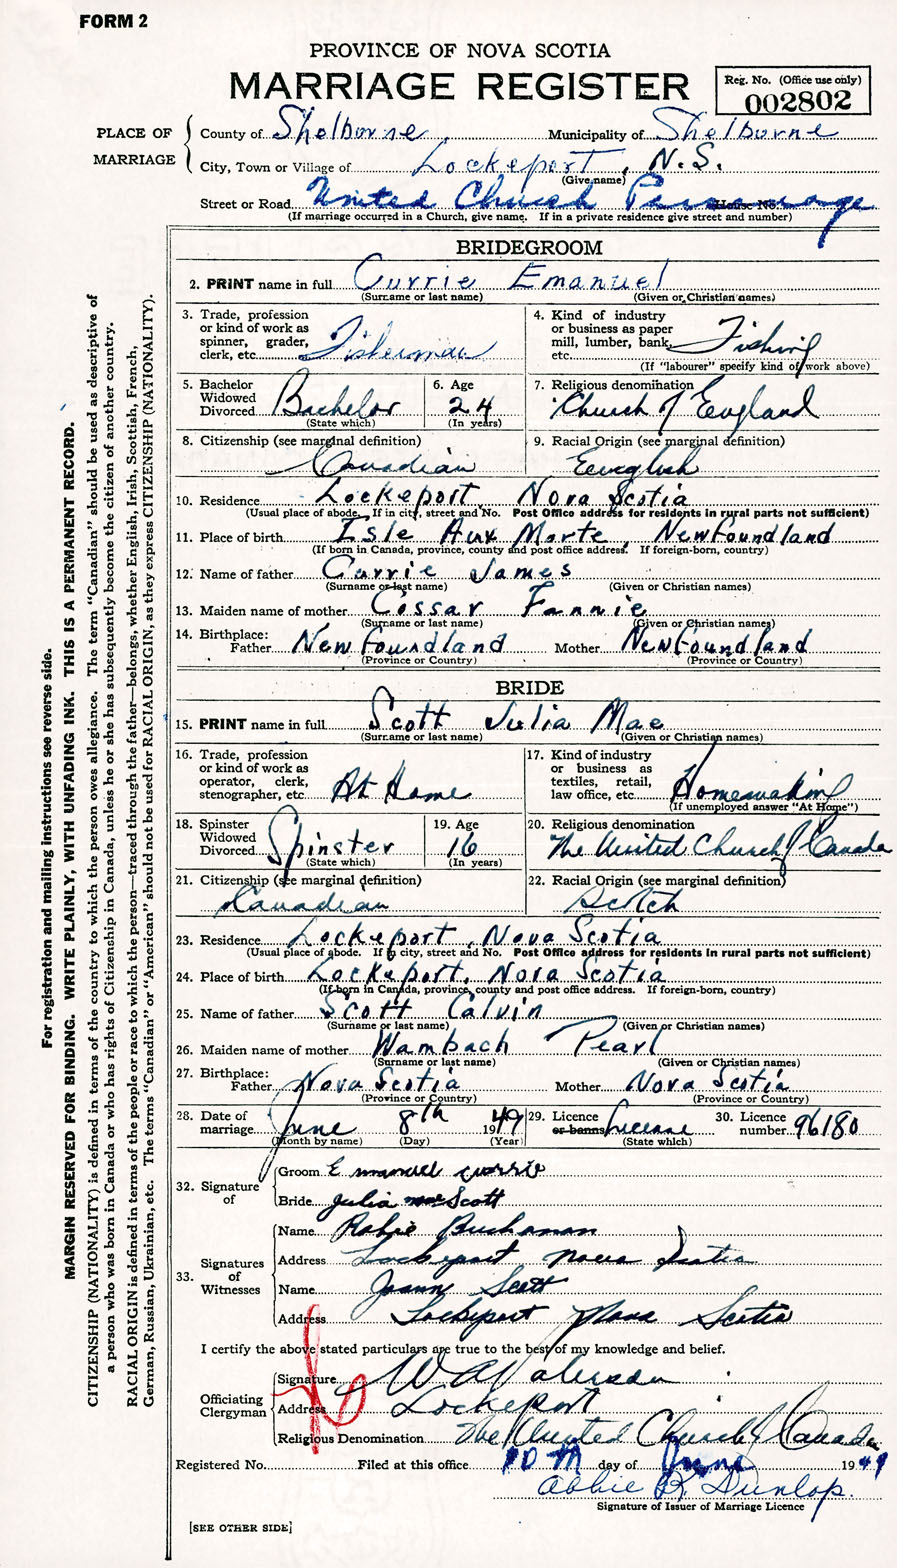 FORM 2
PROVINCE OF NOVA SCOTIA
MARRIAGE REGISTER
Reg. No. (Office use only)
002802
PLACE OF MARRIAGE
County of Shelburne Municipality of Shelburne
City, Town or Village of Lockeport, N.S.
(Give name)
Street or Road United Church Parsonage House No.
(If marriage occurred in a Church, give name. If in a private residence give street and number)
BRIDEGROOM
2. PRINT name in full Currie Emanuel
(Surname or last name) (Given or Christian names)
3. Trade, profession or kind of work as spinner, grader, clerk, etc. Fisherman
4. Kind of industry or business as paper mill, lumber, bank, etc. Fishing
(If "labourer" specify kind of work above)
5. Bachelor Widowed Divorced Bachelor
(State which)
6. Age 24
(In years)
7. Religious denomination
Church of England
8. Citizenship (see marginal definition)
Canadian
9. Racial Origin (see marginal definition)
English
10. Residence Lockeport, Nova Scotia
(Usual place of abode. If in city, street and No. Post Office address for residents in rural parts not sufficient)
11. Place of birth Isle Aux Morte, Newfoundland
(If born in Canada, province, county and post office address. If foreign-born, country)
12. Name of father Currie James
(Surname or last name) (Given or Christian names)
13. Maiden name of mother Cossar Fannie
(Surname or last name) (Given or Christian names)
14. Birthplace: Father Newfoundland Mother Newfoundland
(Province or Country) (Province or Country)
BRIDE
15. PRINT name in full Scott Julia Mae
(Surname or last name) (Given or Christian names)
16. Trade, profession or kind of work as operator, clerk, stenographer, etc. At Home
17. Kind of industry or business as textiles, retail, law office, etc. Homemaking
(If unemployed answer "At Home")
18. Spinster Widowed Divorced Spinster
(State which)
19. Age 16
(In years)
20. Religious denomination
The United Church of Canada
21. Citizenship (see marginal definition)
Canadian
22. Racial Origin (see marginal definition)
Scotch
23. Residence Lockeport, Nova Scotia
(Usual place of abode. If in city, street and No. Post Office address for residents in rural parts not sufficient)
24. Place of birth Lockeport, Nova Scotia
(If born in Canada, province, county and post office address. If foreign-born, country)
25. Name of father Scott Calvin
(Surname or last name) (Given or Christian names)
26. Maiden name of mother Wambach Pearl
(Surname or last name) (Given or Christian names)
27. Birthplace: Father Nova Scotia Mother Nova Scotia
(Province or Country) (Province or Country)
28. Date of marriage June 8th 1949
(Month by name) (Day) (Year)
29. Licence or banns License
(State which)
30. Licence number 96180
32. Signature of
Groom Emanuel Currie
Bride Julia Mae Scott
33. Signatures of Witnesses
Name Buchanan
Address Lockeport Nova Scotia
Name Joann Scott
Address Lockeport Nova Scotia
I certify the above stated particulars are true to the best of my knowledge and belief.
Officiating Clergyman
Signature W A
Address Lockeport
Religious Denomination The United Church of Canada
Registered No. Filed at this office 10th day of June 1949
Abbie R. Dunlop.
Signature of Issuer of Marriage Licence
[SEE OTHER SIDE]
For registration and mailing instructions see reverse side.
MARGIN RESERVED FOR BINDING. WRITE PLAINLY, WITH UNFADING INK. THIS IS A PERMANENT RECORD.
CITIZENSHIP (NATIONALITY) is defined in terms of the country to which the person owes allegiance. The term "Canadian" should be used as descriptive of
a person who was born in Canada or who has rights of Citizenship in Canada, unless he or she has subsequently become the citizen of another country.
RACIAL ORIGIN is defined in terms of the people or race to which the person—traced through the father—belongs, whether English, Irish, Scottish, French,
German, Russian, Ukrainian, etc. The terms "Canadian" or "American" should not be used for RACIAL ORIGIN, as they express CITIZENSHIP (NATIONALITY).